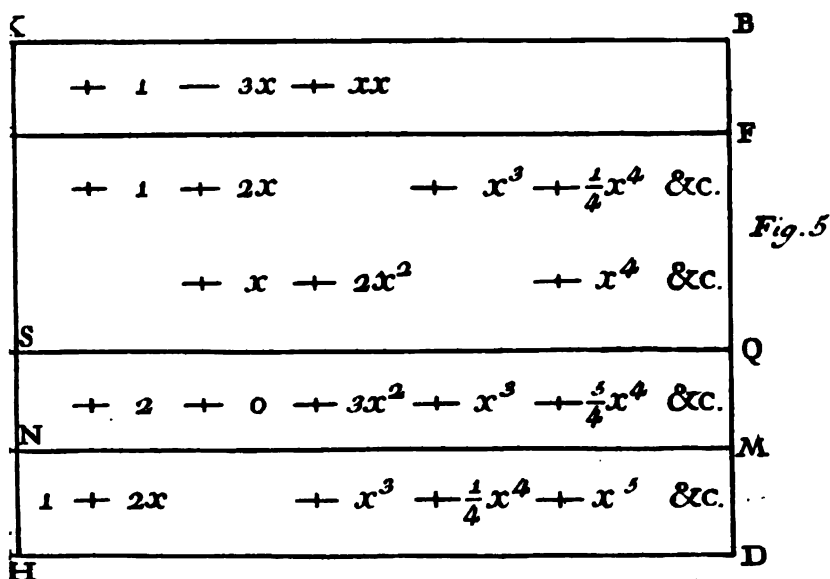 B
+ 1 — 3x + xx
F
+ 1 + 2x + x³ + ¼x⁴ &c.
Fig. 5
+ x + 2x² + x⁴ &c.
S Q
+ 2 + 0 + 3x² + x³ + 5/4x⁴ &c.
N M
1 + 2x + x³ + ¼x⁴ + x⁵ &c.
H D